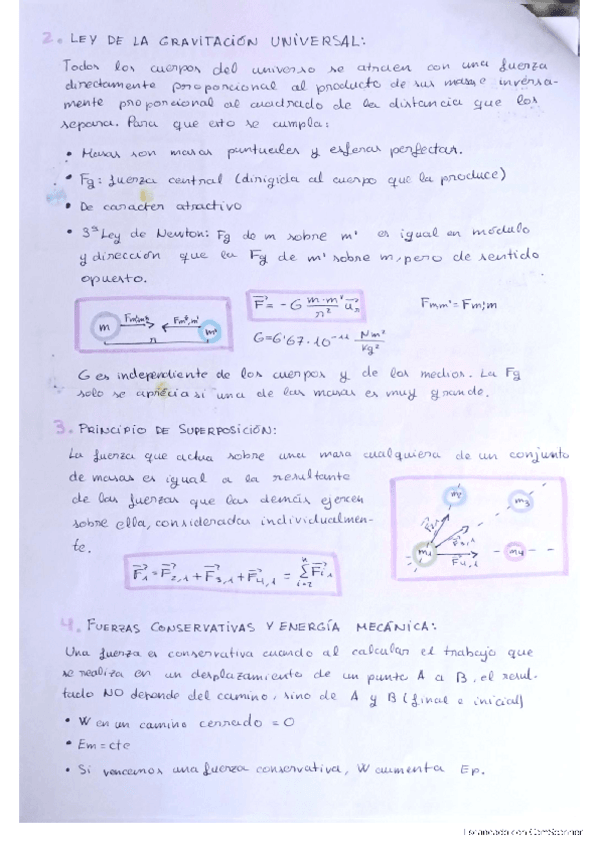 2. LEY DE LA GRAVITACIÓN UNIVERSAL:
Todos los cuerpos del universo se atraen con una fuerza
directamente proporcional al producto de sus masas e inversa-
mente proporcional al cuadrado de la distancia que los
separa. Para que esto se cumpla:
• Masas son masas puntuales y esferas perfectas.
• Fg: fuerza central (dirigida al cuerpo que la produce)
• De caracter atractivo
• 3ª Ley de Newton: Fg de m sobre m' es igual en módulo
y dirección que la Fg de m' sobre m, pero de sentido
opuesto.
m Fm',m Fm,m' m'
r
F = - G m·m'/r² u_r Fm,m' = Fm',m
G=6'67·10⁻¹¹ Nm²/kg²
G es independiente de los cuerpos y de los medios. La Fg
solo se aprecia si una de las masas es muy grande.
3. PRINCIPIO DE SUPERPOSICIÓN:
La fuerza que actua sobre una masa cualquiera de un conjunto
de masas es igual a la resultante
de las fuerzas que las demás ejercen
sobre ella, consideradas individualmen-
te.
m2 m3
F2,1 F3,1
m1 F4,1 m4
F1 = F2,1 + F3,1 + F4,1 = Σ Fi,1
i=2
4. FUERZAS CONSERVATIVAS Y ENERGÍA MECÁNICA:
Una fuerza es conservativa cuando al calcular el trabajo que
se realiza en un desplazamiento de un punto A a B, el resul-
tado NO depende del camino, sino de A y B (final e inicial)
• W en un camino cerrado = 0
• Em = cte
• Si vencemos una fuerza conservativa, W aumenta Ep.
Escaneado con CamScanner